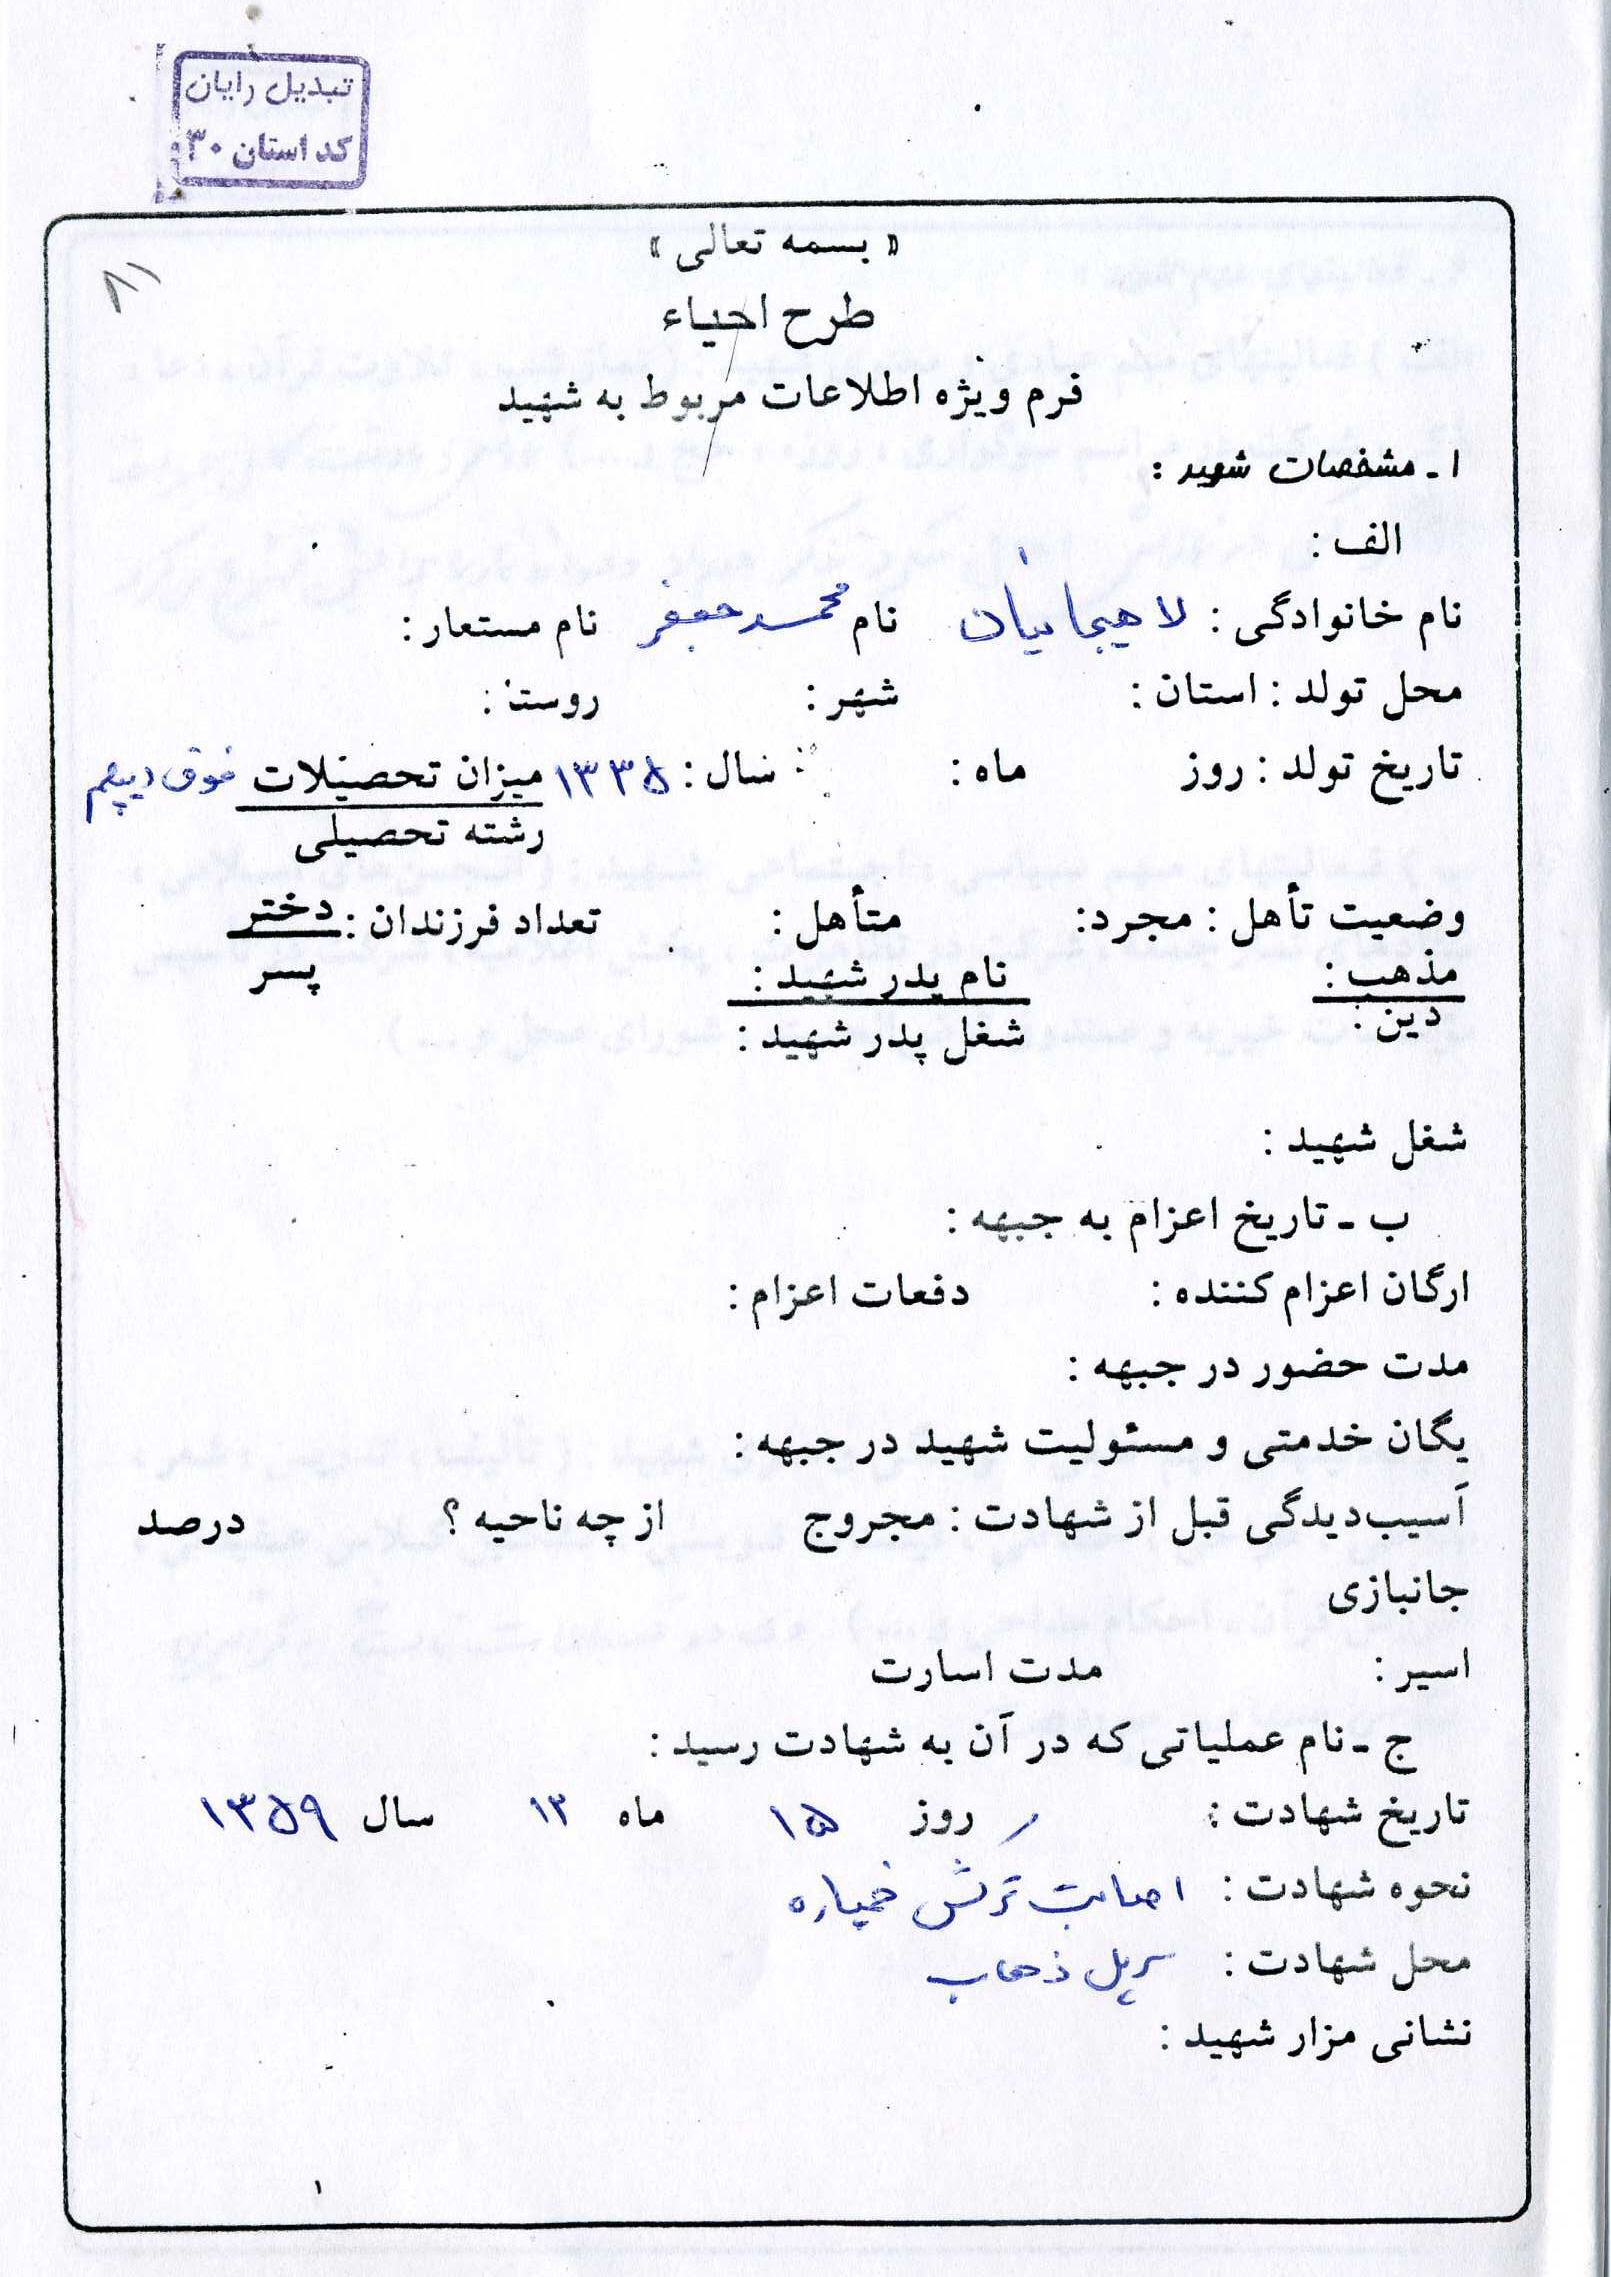 تبدیل رایان
کد استان ۳۰
« بسمه تعالی »
طرح احیاء
فرم ویژه اطلاعات مربوط به شهید
۱ ـ مشخصات شهید :
الف :
نام خانوادگی : لاهیجانیان نام محمد جعفر نام مستعار :
محل تولد : استان : شهر : روستا :
تاریخ تولد : روز ماه : سال : ۱۳۳۵ میزان تحصیلات فوق دیپلم
رشته تحصیلی
وضعیت تأهل : مجرد : متأهل : تعداد فرزندان : دختر
پسر
مذهب : نام پدر شهید :
دین : شغل پدر شهید :
شغل شهید :
ب ـ تاریخ اعزام به جبهه :
ارگان اعزام کننده : دفعات اعزام :
مدت حضور در جبهه :
یگان خدمتی و مسئولیت شهید در جبهه :
آسیب‌دیدگی قبل از شهادت : مجروح از چه ناحیه ؟ درصد
جانبازی
اسیر : مدت اسارت
ج ـ نام عملیاتی که در آن به شهادت رسید :
تاریخ شهادت : روز ۱۵ ماه ۱۲ سال ۱۳۵۹
نحوه شهادت : اصابت ترکش خمپاره
محل شهادت : سرپل ذهاب
نشانی مزار شهید :
۱